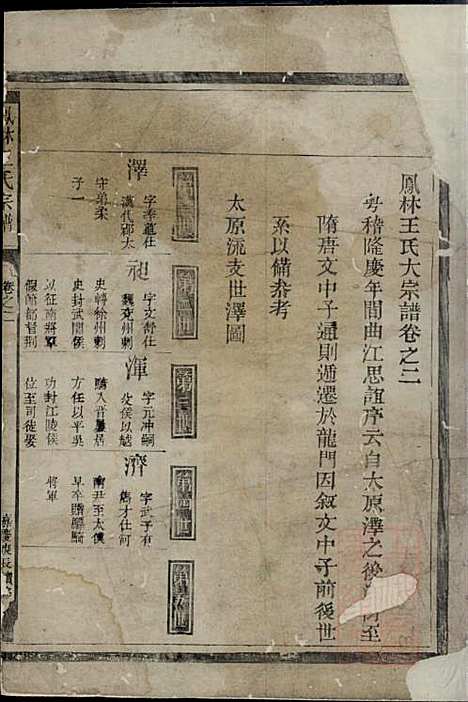 鳳林王氏大宗譜卷之二
粤稽隆慶年間曲江思誼序云自太原澤之後
至
隋唐文中子通則遁遷於龍門因叙文中子前後世
系以備叅考
太原流支世澤圖
第一世
第二世
第三世
第四世
第五世
澤
字季道仕
漢代郡太
守弟柔
子一
昶
字文舒仕
魏兖州刺
史轉徐州刺
史封武關侯
以征南將軍
假節都督荆
渾
字元冲嗣
父侯以越
騎入晋屢居
方任以平吳
功封江陵侯
位至司徒娶
濟
字武子有
雋才仕河
南尹至太僕
早卒贈驃騎
將軍
鳳林王氏宗譜
卷之二
嘉慶庚辰